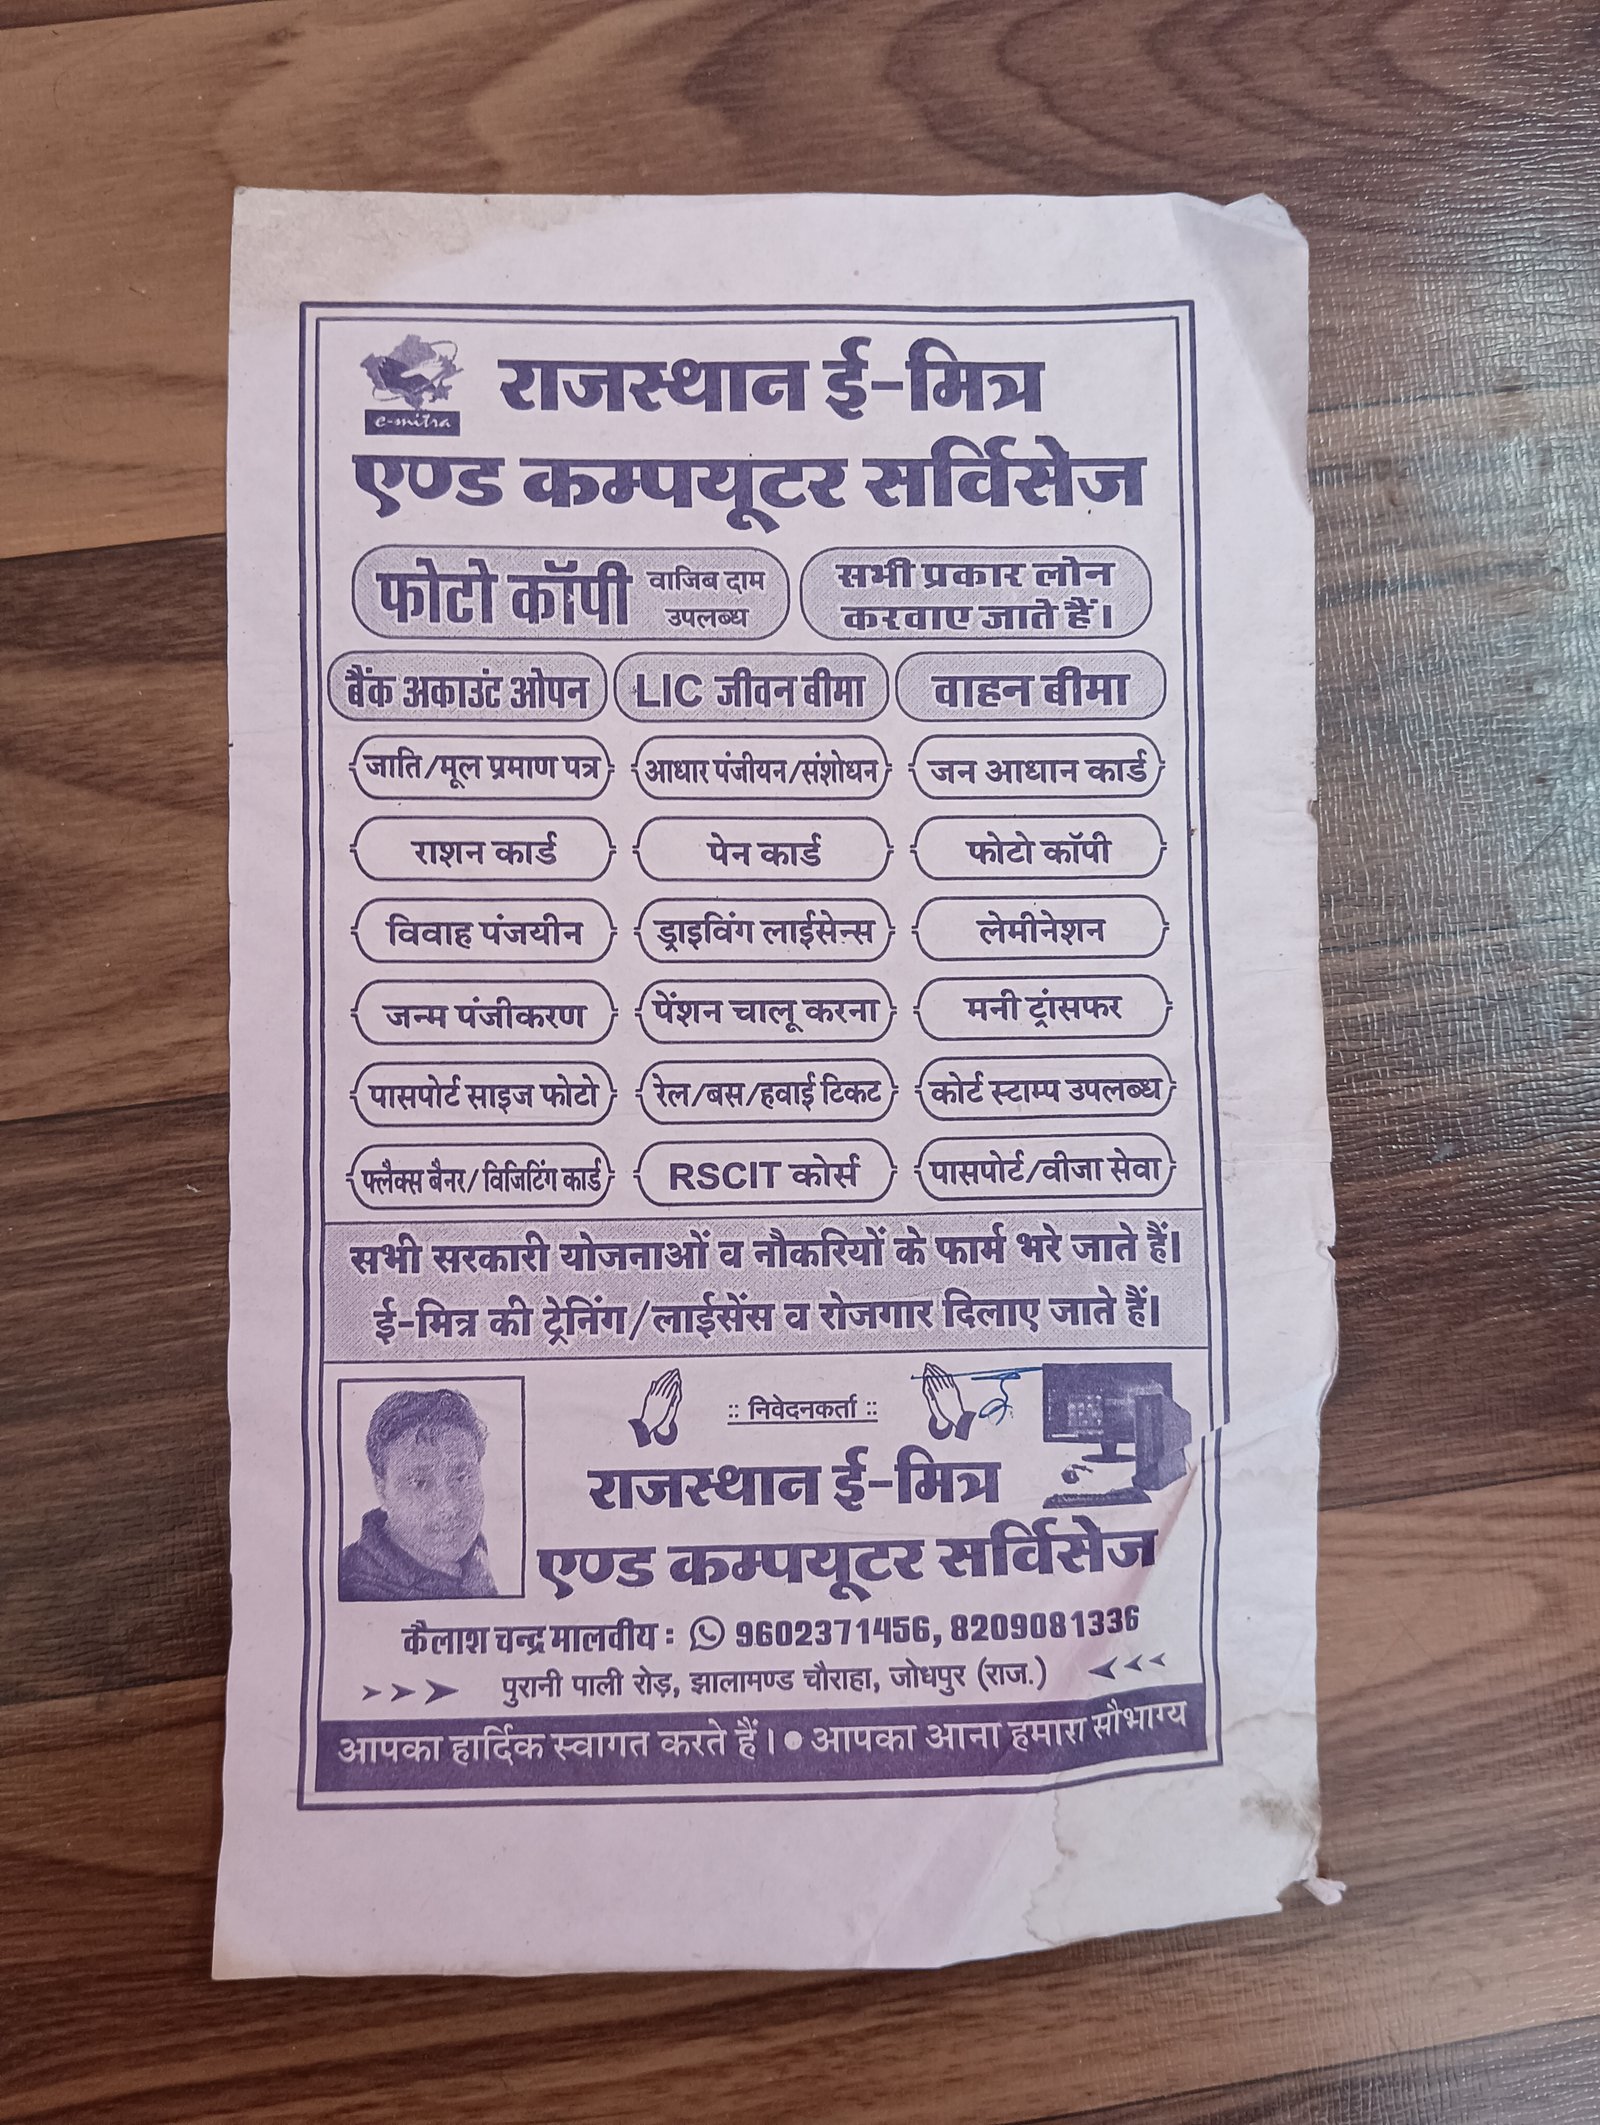 e-mitra
राजस्थान ई-मित्र
एण्ड कम्पयूटर सर्विसेज
फोटो कॉपी वाजिब दाम उपलब्ध
सभी प्रकार लोन
करवाए जाते हैं।
बैंक अकाउंट ओपन LIC जीवन बीमा वाहन बीमा
जाति/मूल प्रमाण पत्र आधार पंजीयन/संशोधन जन आधान कार्ड
राशन कार्ड पेन कार्ड फोटो कॉपी
विवाह पंजयीन ड्राइविंग लाईसेन्स लेमीनेशन
जन्म पंजीकरण पेंशन चालू करना मनी ट्रांसफर
पासपोर्ट साइज फोटो रेल/बस/हवाई टिकट कोर्ट स्टाम्प उपलब्ध
फ्लैक्स बैनर/ विजिटिंग कार्ड RSCIT कोर्स पासपोर्ट/वीजा सेवा
सभी सरकारी योजनाओं व नौकरियों के फार्म भरे जाते हैं।
ई-मित्र की ट्रेनिंग/लाईसेंस व रोजगार दिलाए जाते हैं।
:: निवेदनकर्ता ::
राजस्थान ई-मित्र
एण्ड कम्पयूटर सर्विसेज
कैलाश चन्द्र मालवीय : 9602371456, 8209081336
पुरानी पाली रोड़, झालामण्ड चौराहा, जोधपुर (राज.)
आपका हार्दिक स्वागत करते हैं। ● आपका आना हमारा सौभाग्य